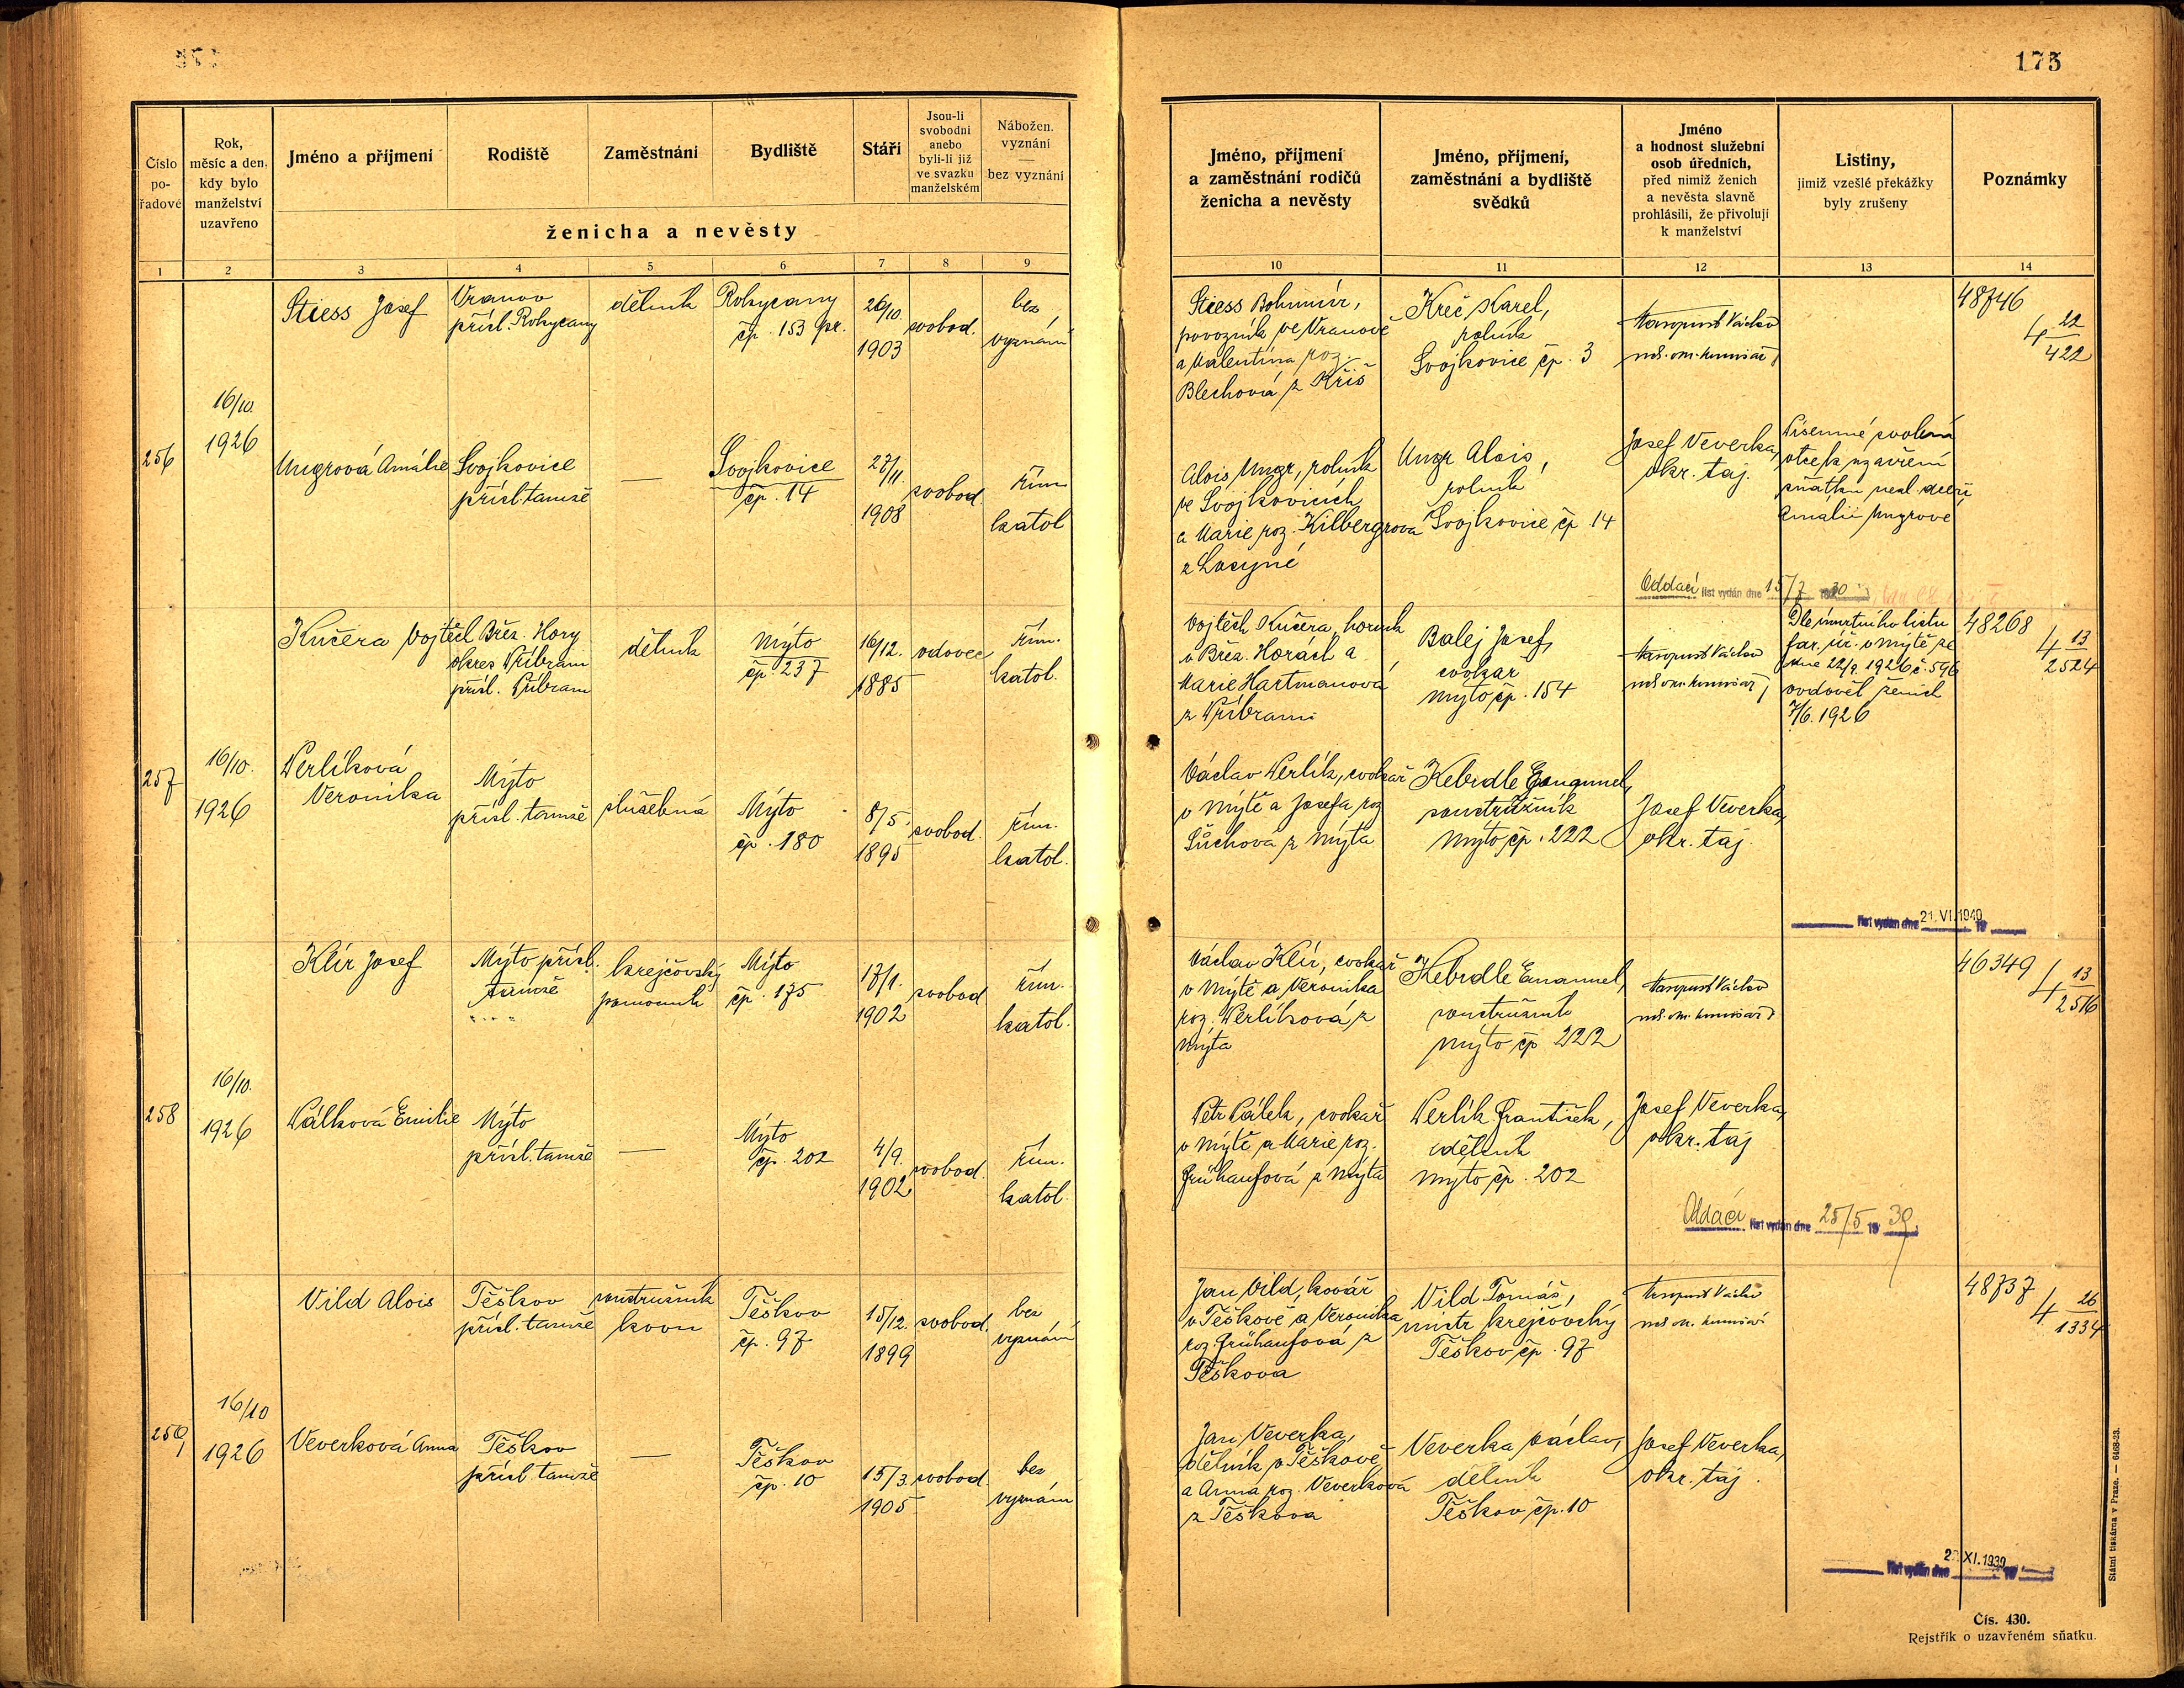 175
Číslo
po-
řadové
Rok,
měsíc a den,
kdy bylo
manželství
uzavřeno
Jméno a příjmení
Rodiště
Zaměstnání
Bydliště
Stáří
Jsou-li
svobodni
anebo
byli-li již
ve svazku
manželském
Nábožen.
vyznání
—
bez vyznání
ženicha a nevěsty
Jméno, příjmení
a zaměstnání rodičů
ženicha a nevěsty
Jméno, příjmení,
zaměstnání a bydliště
svědků
Jméno
a hodnost služební
osob úředních,
před nimiž ženich
a nevěsta slavně
prohlásili, že přivolují
k manželství
Listiny,
jimiž vzešlé překážky
byly zrušeny
Poznámky
1 2 3 4 5 6 7 8 9 10 11 12 13 14
256
16/10.
1926
Stiess Josef
Vranov
přísl. Rokycany
dělník
Rokycany
čp. 153 pr.
26/10.
1903
svobod.
bez
vyznání
Stiess Bohumír,
povozník ve Vranově
a Valentina roz.
Blechová z Kříš
Kreč Karel,
rolník
Svojkovice čp. 3
Václav
48746
4 22/422
Ungrová Amálie
Svojkovice
přísl. tamže
—
Svojkovice
čp. 14
27/11.
1908
svobod.
řím.
katol
Alois Ungr, rolník
ve Svojkovicích
a Marie roz. Kilbergrová
z Losyné
Ungr Alois,
rolník
Svojkovice čp. 14
Josef Veverka,
okr. taj.
Písemné svolení
otce k uzavření
sňatku nezl. dcery
Amálii Ungrové
Oddací list vydán dne 15/7 1930
257
16/10.
1926
Kučera Vojtěch
Břez. Hory
okres Příbram
přísl. Příbram
dělník
Mýto
čp. 237
16/12.
1885
vdovec
řím.
katol.
Vojtěch Kučera, horník
v Břez. Horách a
Marie Hartmanová
z Příbrami
Balej Josef,
cvokař
Mýto čp. 154
Václav
Dle úmrtního listu
far. úř. v Mýtě ze
dne 22/9. 1926 č. 596
ovdověl ženich
7/6. 1926
48268
4 13/2524
Perlíková
Veronika
Mýto
přísl. tamže
služebná
Mýto
čp. 180
8/5.
1895
svobod.
řím.
katol.
Václav Perlík, cvokař
v Mýtě a Josefa roz.
Šůchová z Mýta
Kebrdle Emanuel,
soustružník
Mýto čp. 222
Josef Veverka,
okr. taj.
list vydán dne 21. VI. 1940 19
258
16/10.
1926
Klír Josef
Mýto přísl.
tamže
krejčovský
pomocník
Mýto
čp. 175
17/1.
1902
svobod
řím.
katol.
Václav Klír, cvokař
v Mýtě a Veronika
roz. Perlíková z
Mýta
Kebrdle Emanuel,
soustružník
Mýto čp 222
Václav
46349
4 13/2516
Válková Emilie
Mýto
přísl. tamže
—
Mýto
čp. 202
4/9.
1902
svobod.
řím.
katol.
Petr Válek, cvokař
v Mýtě a Marie roz.
Frühaufová z Mýta
Perlík František,
dělník
Mýto čp. 202
Josef Veverka,
okr. taj
Oddací list vydán dne 25/5 19 39
259
16/10
1926
Vild Alois
Těškov
přísl. tamže
soustružník
kovu
Těškov
čp. 97
15/12.
1899
svobod.
bez
vyznání
Jan Vild, kovář
v Těškově a Veronika
roz. Frühaufová z
Těškova
Vild Tomáš,
mistr krejčovský
Těškov čp. 97
Václav
48737
4 26/1334
Veverková Anna
Těškov
přísl. tamže
—
Těškov
čp. 10
15/3.
1905
svobod
bez
vyznání
Jan Veverka,
dělník v Těškově
a Anna roz. Veverková
z Těškova
Veverka Václav,
dělník
Těškov čp. 10
Josef Veverka,
okr. taj.
list vydán dne XI. 1939 19
Státní tiskárna v Praze. — 6468-23.
Čís. 430.
Rejstřík o uzavřeném sňatku.